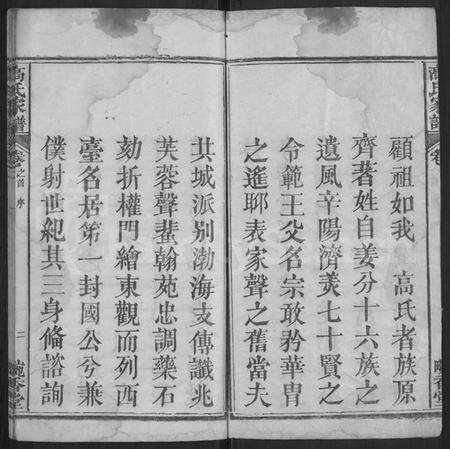 高氏家譜
顧祖如我　高氏者族原
齊著姓自姜分十六族之
遺風辛陽濟美七十賢之
令範王父名宗敢矜華冑
之遙耶表家聲之舊當夫
共城派別渤海支傳讖兆
芙蓉聲蜚翰苑忠調藥石
劾折權門繪東觀而列西
臺名居第一封國公兮兼
僕射世紀其三身備諮詢
高氏家譜
卷之首 序
二
畹香堂